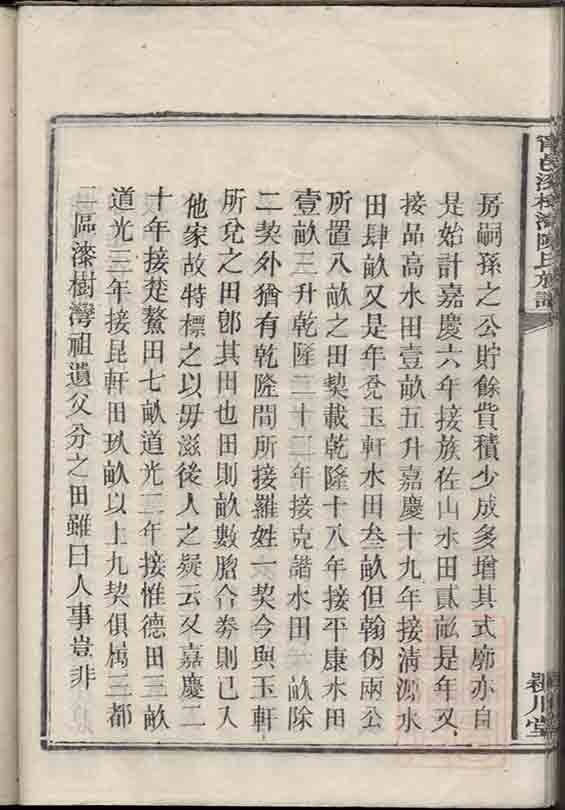 甯邑漆樹灣陳氏族譜
穎川堂
房嗣孫之公貯餘貲積少成多增其式廓亦自
是始計嘉慶六年接族佐山水田貳畝是年又
接品高水田壹畝五升嘉慶十九年接清源水
田肆畝又是年兌玉軒水田叁畝但翰伢兩公
所置八畝之田契載乾隆十八年接平康水田
壹畝三升乾隆二十二年接克諧水田一畝除
二契外猶有乾隆間所接羅姓一契今與玉軒
所兌之田卽其田也田則畝數脗合券則已入
他家故特標之以毋滋後人之疑云又嘉慶二
十年接楚鰲田七畝道光二年接惟德田三畝
道光三年接昆軒田玖畝以上九契俱屬三都
二區漆樹灣祖遺父分之田雖曰人事豈非